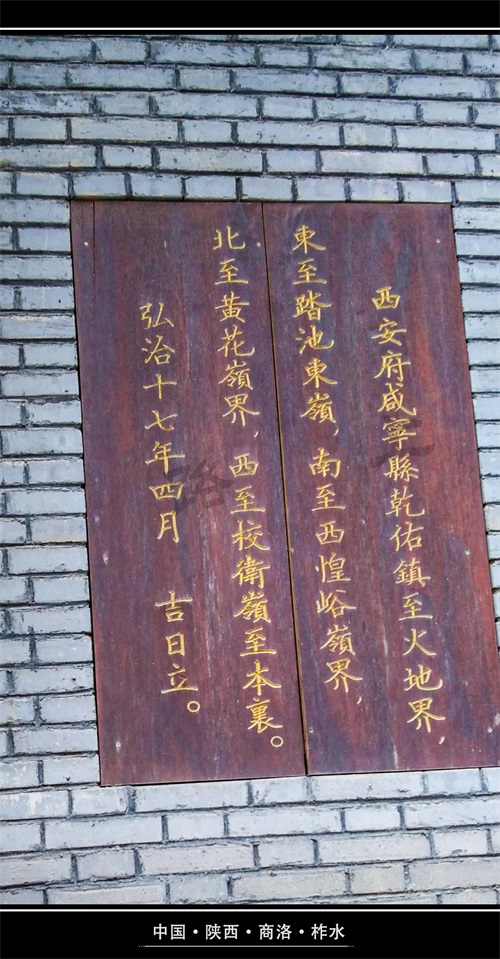 西安府咸寧縣乾佑鎮至火地界,
東至踏池東嶺,南至西惶峪嶺界,
北至黃花嶺界,西至校衛嶺至本襄。
弘治十七年四月 吉日立。
中国·陕西·商洛·柞水